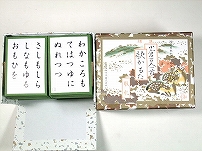 わかころも
てはつゆに
ぬれつつ
さしもしら
しなもゆる
おもひを